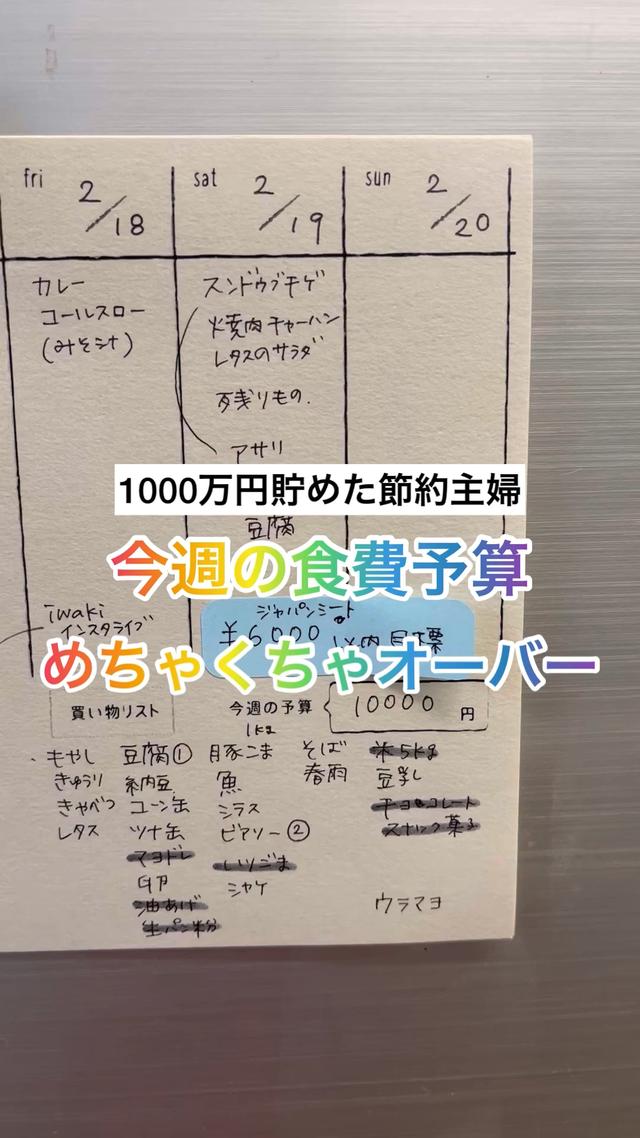 fri 2/18
sat 2/19
sun 2/20
カレー
コールスロー
(みそ汁)
スンドゥブチゲ
焼肉チャーハン
レタスのサラダ
残りもの.
アサリ
1000万円貯めた節約主婦
豆腐
今週の食費予算
iwaki
インスタライブ
ジャパンミート
¥6000 以内目標
めちゃくちゃオーバー
買い物リスト
今週の予算
10000 円
1kg
もやし
きゅうり
きゃべつ
レタス
豆腐①
納豆
コーン缶
ツナ缶
マヨドレ
卵
油あげ
生パン粉
豚こま
魚
シラス
ピアソー②
いりごま
シャケ
そば
春雨
米5kg
豆乳
チョコレート
スナック菓子
ウラマヨ